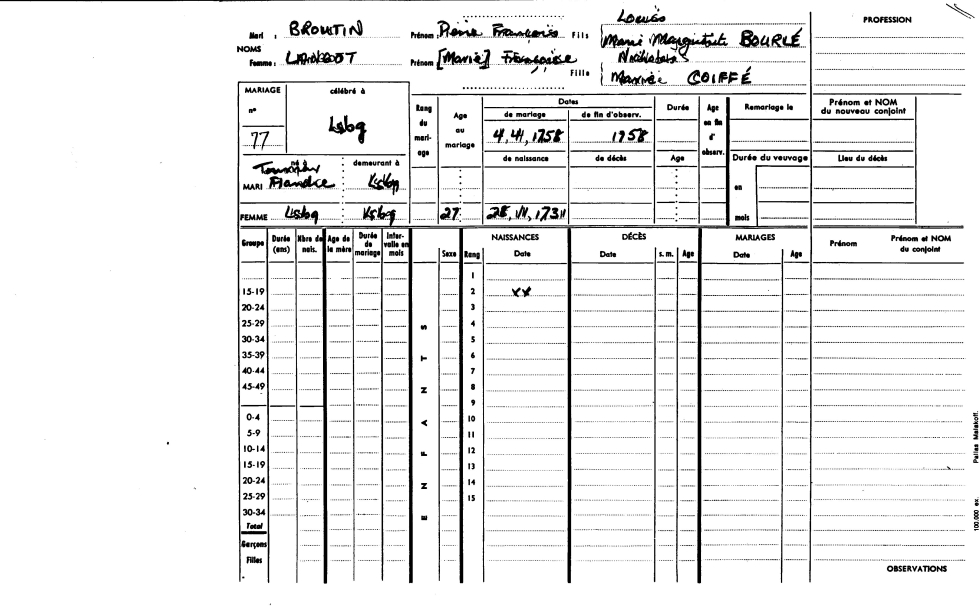 Mari : BROUTIN Prénom : Pierre François Fils Louis
Marie Marguerite BOURLÉ
NOMS
Femme : Prénom [Marie] Françoise Fille
COIFFÉ
PROFESSION
MARIAGE célébré à
n°
77 Lsbg
Rang du mariage Age au mariage Dates Durée Age en fin d'observ. Remariage le Prénom et NOM du nouveau conjoint
de mariage de fin d'observ.
4, 1758 1758
de naissance de décès Age Durée du veuvage Lieu du décès
né à demeurant à
MARI Flandre Lsbg
en
FEMME Lsbg Lsbg 27 1731
mois
Groupe Durée (ans) Nbre de nais. Age de la mère Durée de mariage Intervalle en mois Sexe Rang NAISSANCES Date DÉCÈS Date s. m. Age MARIAGES Date Age Prénom Prénom et NOM du conjoint
ENFANTS
1
15-19 2 xx
20-24 3
25-29 4
30-34 5
35-39 6
40-44 7
45-49 8
9
0-4 10
5-9 11
10-14 12
15-19 13
20-24 14
25-29 15
30-34
Total
Garçons
Filles
OBSERVATIONS
100.000 ex. Pallas Malakoff.